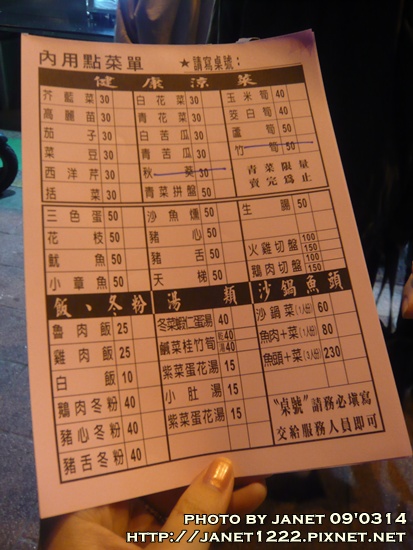 內用點菜單 ★請寫桌號：
健康涼菜
芥藍菜 30 白花菜 30 玉米筍 40
高麗苗 30 青花菜 30 茭白筍 40
茄子 30 白苦瓜 30 蘆筍 50
菜豆 30 青苦瓜 30 竹筍 50
西洋芹 30 秋葵 30 青菜限量
括菜 30 青菜拼盤 50 賣完為止
三色蛋 50 沙魚燻 50 生腸 50
花枝 50 豬心 50
魷魚 50 豬舌 50 火雞切盤 100 150
小章魚 50 天梯 50 鵝肉切盤 100 150
飯、冬粉 湯類 沙鍋魚頭
魯肉飯 25 冬菜蝦仁蛋湯 40 沙鍋菜(1人份) 60
雞肉飯 25 鹹菜桂竹筍 40 魚肉+菜(1人份) 80
白飯 10 紫菜蛋花湯 15 魚頭+菜(3人份) 230
鵝肉冬粉 40 小肚湯 15
豬心冬粉 40 紫菜蛋花湯 15 "桌號"請務必填寫
豬舌冬粉 40 交給服務人員即可
PHOTO BY JANET 09'0314
HTTP://JANET1222.PIXNET.NET